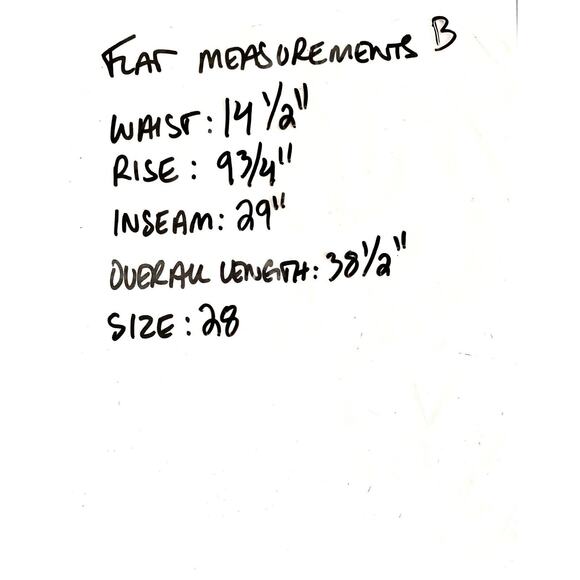 FLAT MEASUREMENTS B
WAIST: 14 1/2"
RISE: 9 3/4"
INSEAM: 29"
OVERALL LENGTH: 38 1/2"
SIZE: 28